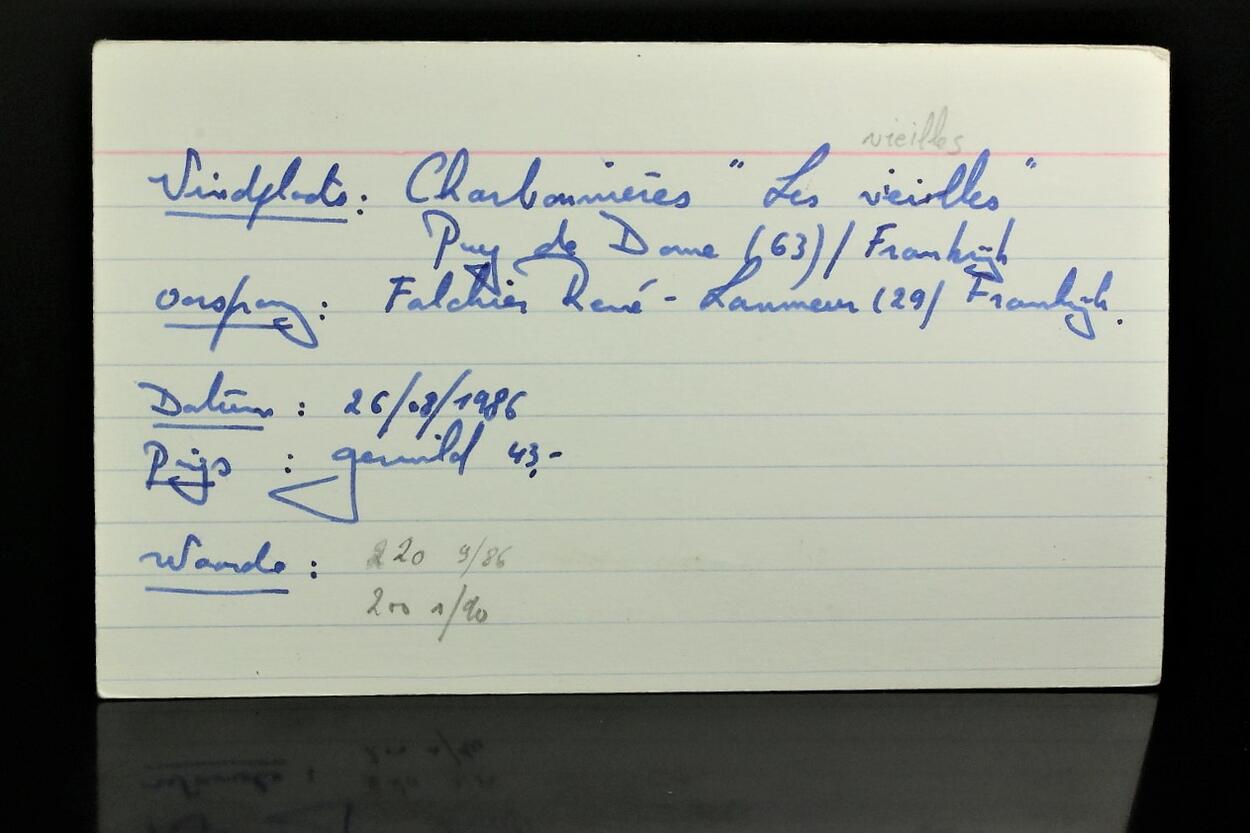 vieilles
Vindplaats: Charbonnières "Les vieilles"
Puy de Dome (63)/ Frankrijk
oorsprong: Falchier René - Lanmeur (29/ Frankrijk.
Datum : 26/08/1986
Prijs : geruild 43,-
Waarde : 220 9/86
200 1/90